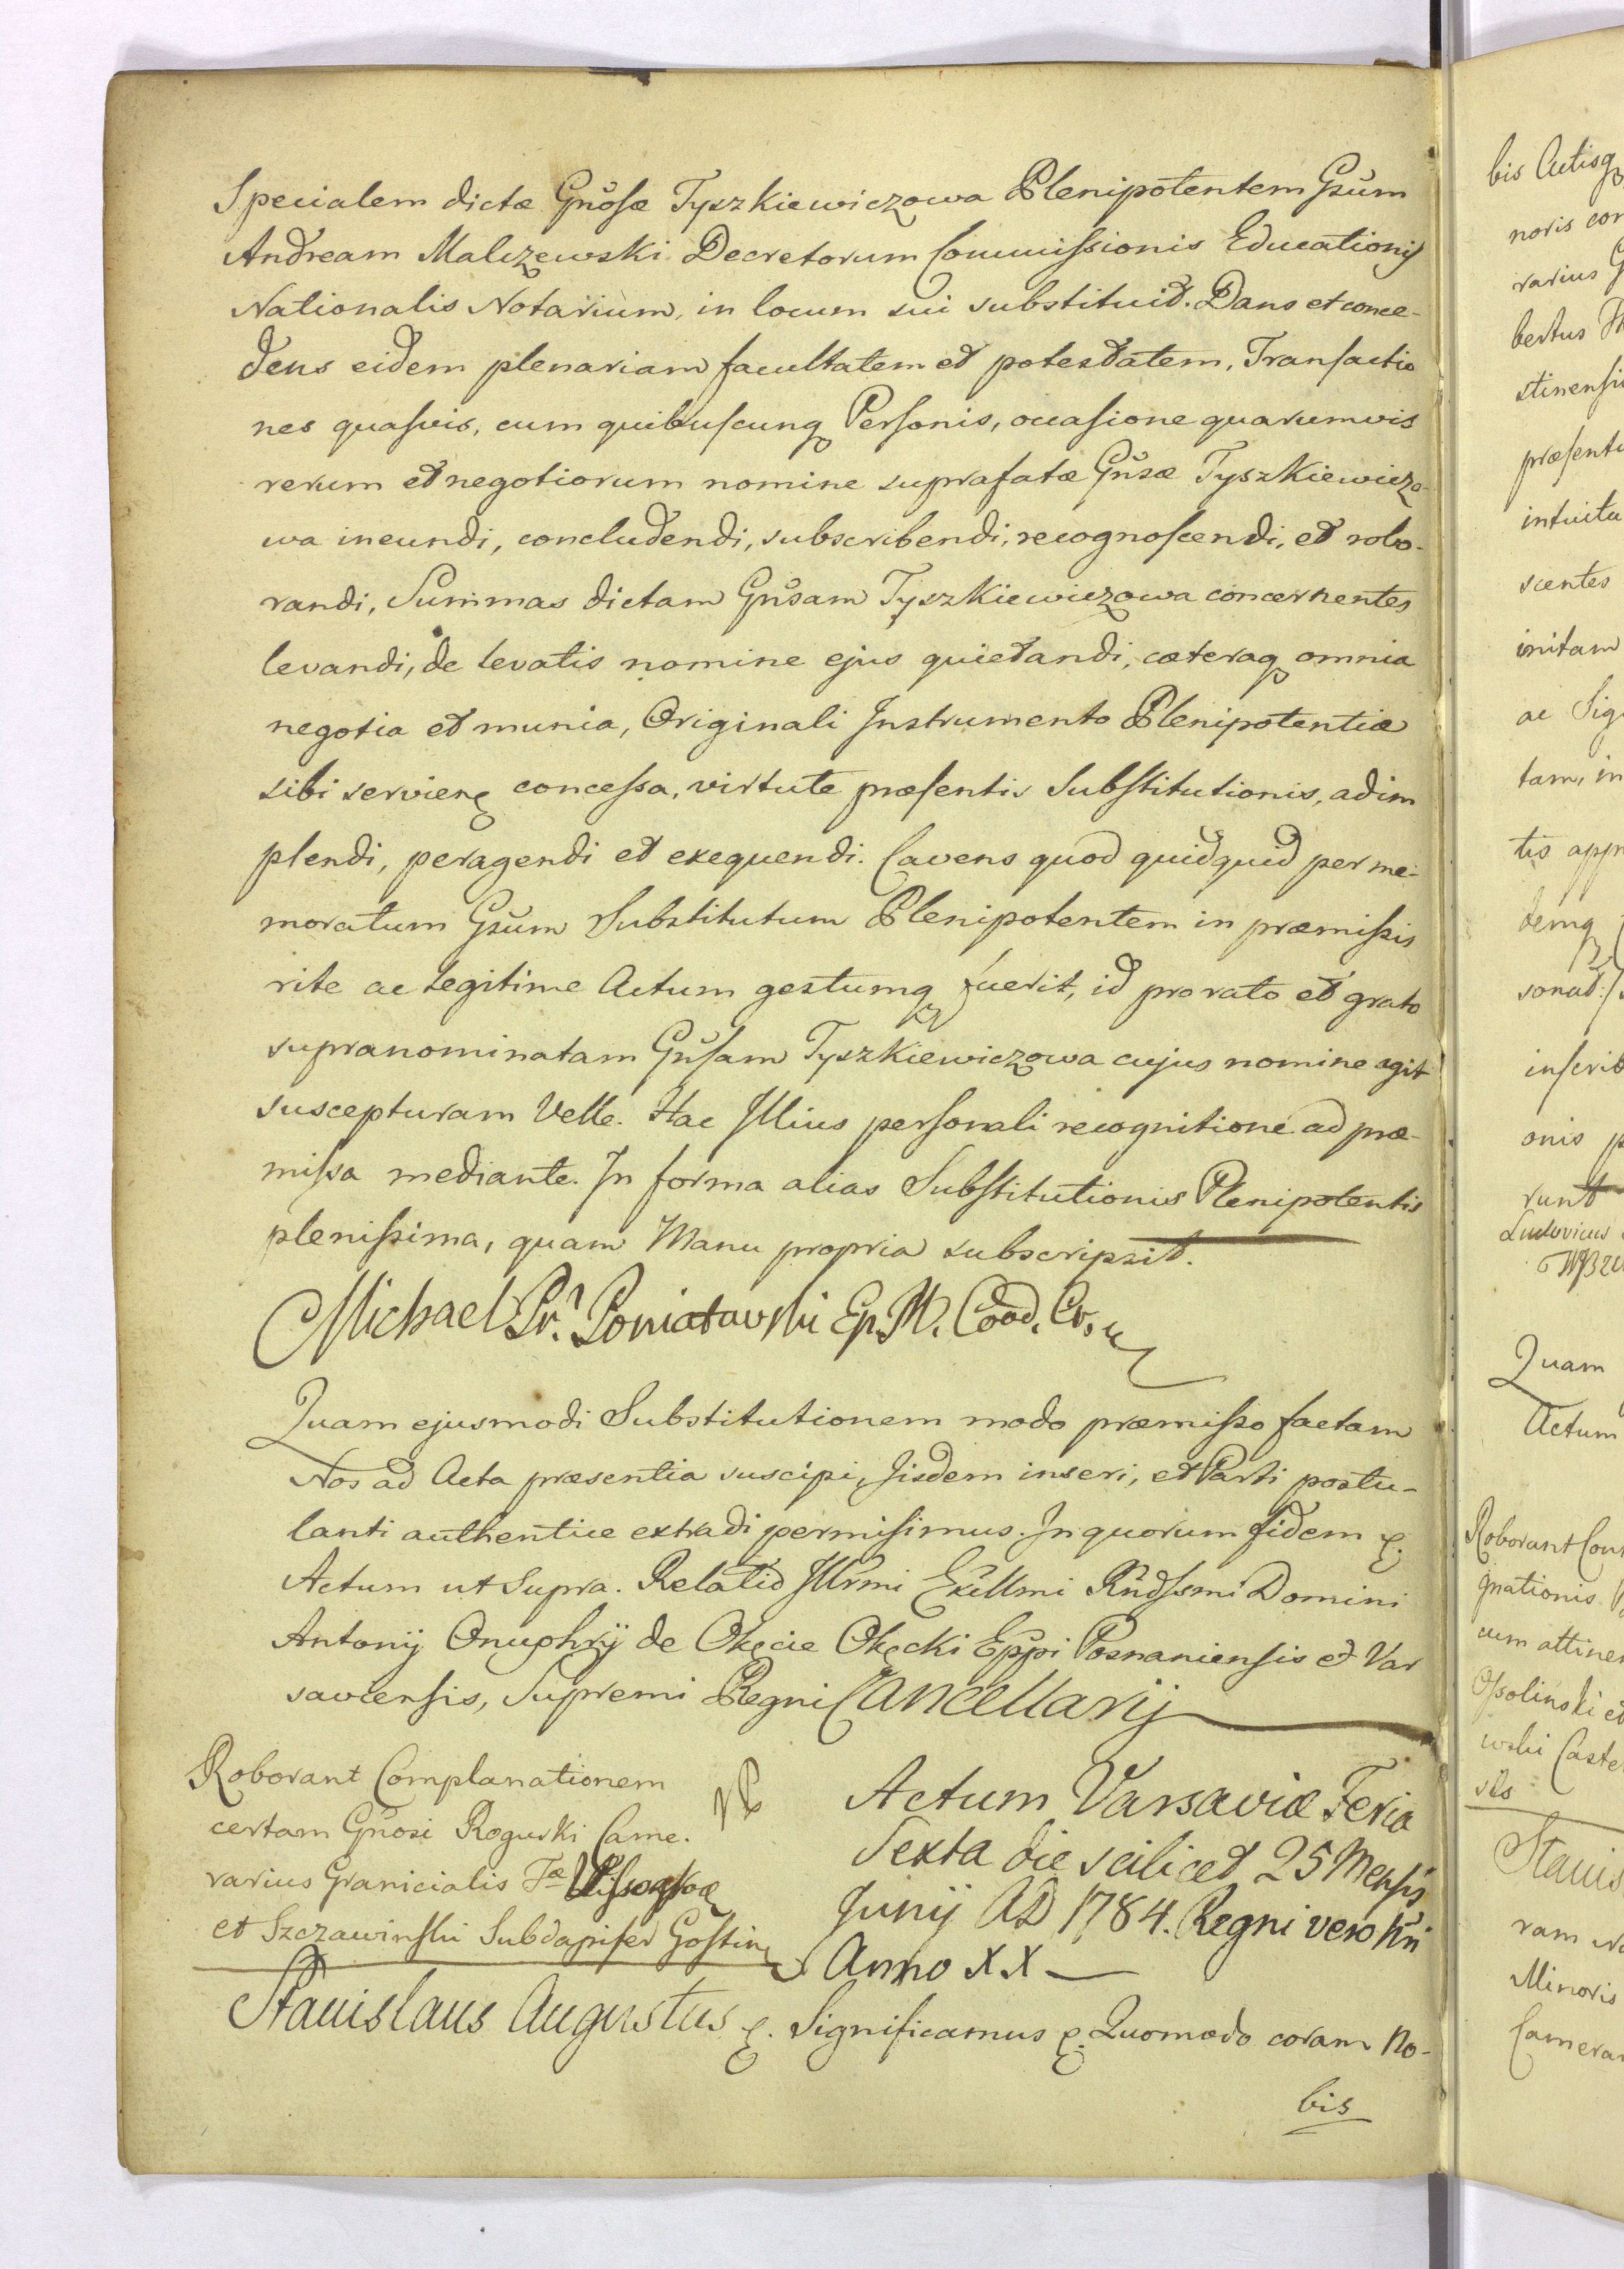 Specialem dictæ Gn̄osæ Tyszkiewiczowa Plenipotentem Gsūm
Andream Malczewski Decretorum Commissionis Educationis
Nationalis Notarium, in locum sui substituit. Dans et conce-
dens eidem plenariam facultatem et potestatem, Transactio
nes quasvis, cum quibuscunq Personis, occasione quarumvis
rerum et negotiorum nomine suprafatæ Gn̄sæ Tyszkiewiczo-
wa ineundi, concludendi, subscribendi, recognoscendi, et robo-
randi, Summas dictam Gn̄sam Tyszkiewiczowa concernentes
levandi, de levatis nomine ejus quietandi, cæteraq omnia
negotia et munia, Originali Instrumento Plenipotentiæ
sibi servien concessa, virtute præsentis Substitutionis, adim
plendi, peragendi et exequendi. Cavens quod quidquid per me-
moratum Gsūm Substitutum Plenipotentem in præmissis
rite ac legitime Actum gestumq fuerit, id pro rato et grato
supranominatam Gn̄sam Tyszkiewiczowa cujus nomine agit
suscepturam Velle. Hac Illius personali recognitione ad præ-
missa mediante. In forma alias Substitutionis Plenipotentis
plenissima, quam Manu propria subscripsit.
Michael Pr. Poniatowski Ep. Pł. Coad. Cr.
Quam ejusmodi Substitutionem modo præmisso factam
Nos ad Acta præsentia suscipi, Iisdem inseri, et Parti postu-
lanti authentice extradi permisimus. In quorum fidem
Actum ut Supra. Relatio Illr̄mi Exc̄llmi Rn̄dssmi Domini
Antonij Onuphrij de Okęcie Okęcki Ep̄pi Posnaniensis et Var
saviensis, Supremi Regni Cancellarij
Roborant Complanationem
certam Gn̄osi Rogurski Came.
rarius Granicialis Tæ
et Szczawinski Subdapifer Gostin
Actum Varsaviæ Feria
Sexta die scilicet 25 Mensis
Junij AD 1784. Regni vero n̄ri
Anno XX
Stanislaus Augustus Significamus Quomodo coram No-
bis
bis Actisq
noris con
rarius G
bertus
stinensi
præsenti
intuitu
scentes
initam
ac Sig
tam, in
tis app
demq
sonat
inscrib
onis p
runt
Ludovicus
Quam
Actum
Roborant Con
gnationis
cum attine
Ossolinski et
wski Caste
sis
Stanis
ram No
Minoris
Camerar